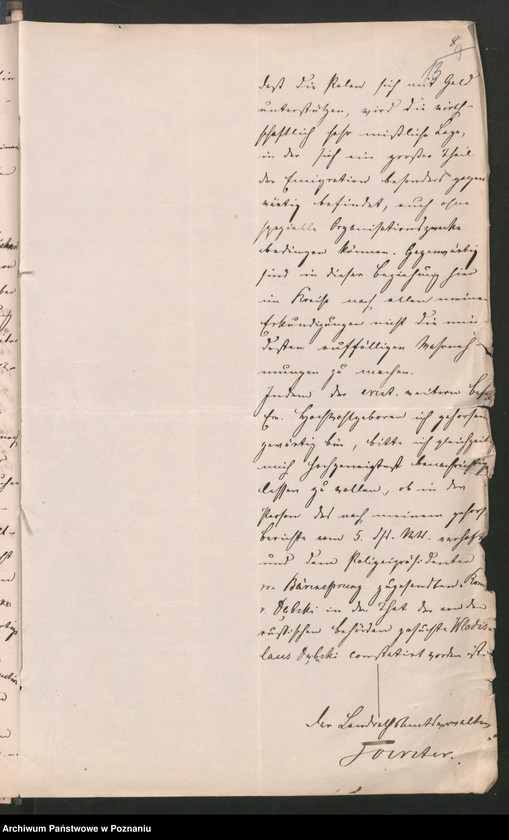 8
9
13
daß die Polen sich mit Geld
unterstützen, wird die wirth-
schaftlich sehr mißliche Lage,
in der sich ein großer Theil
der Emigration besonders gegen
wärtig befindet, auch ohne
spezielle Organisationszwecke
bedingen können. Gegenwärtig
sind in dieser Beziehung hier
im Kreise nach allen meinen
Erkundigungen nicht die min
desten auffälligen Wahrneh-
mungen zu machen.
Indem der weiteren
Ew. Hochwohlgeboren ich gehorsam
gewärtig bin, bitte ich gleichzeitig
mich hochgeneigtest benachrichtigen
lassen zu wollen, ob in der
Person des nach meinem gehors.
Berichte vom 5. dss. Mts. verhaft
und dem Polizeipräsidenten
v. Bärensprung zugesandten
v. Dybcki in der That der von den
russischen Behörden gesuchte Wladis-
laus Dybcki constatirt worden ist.
Der Landrathsamtsverwalter
Foerster.
Archiwum Państwowe w Poznaniu